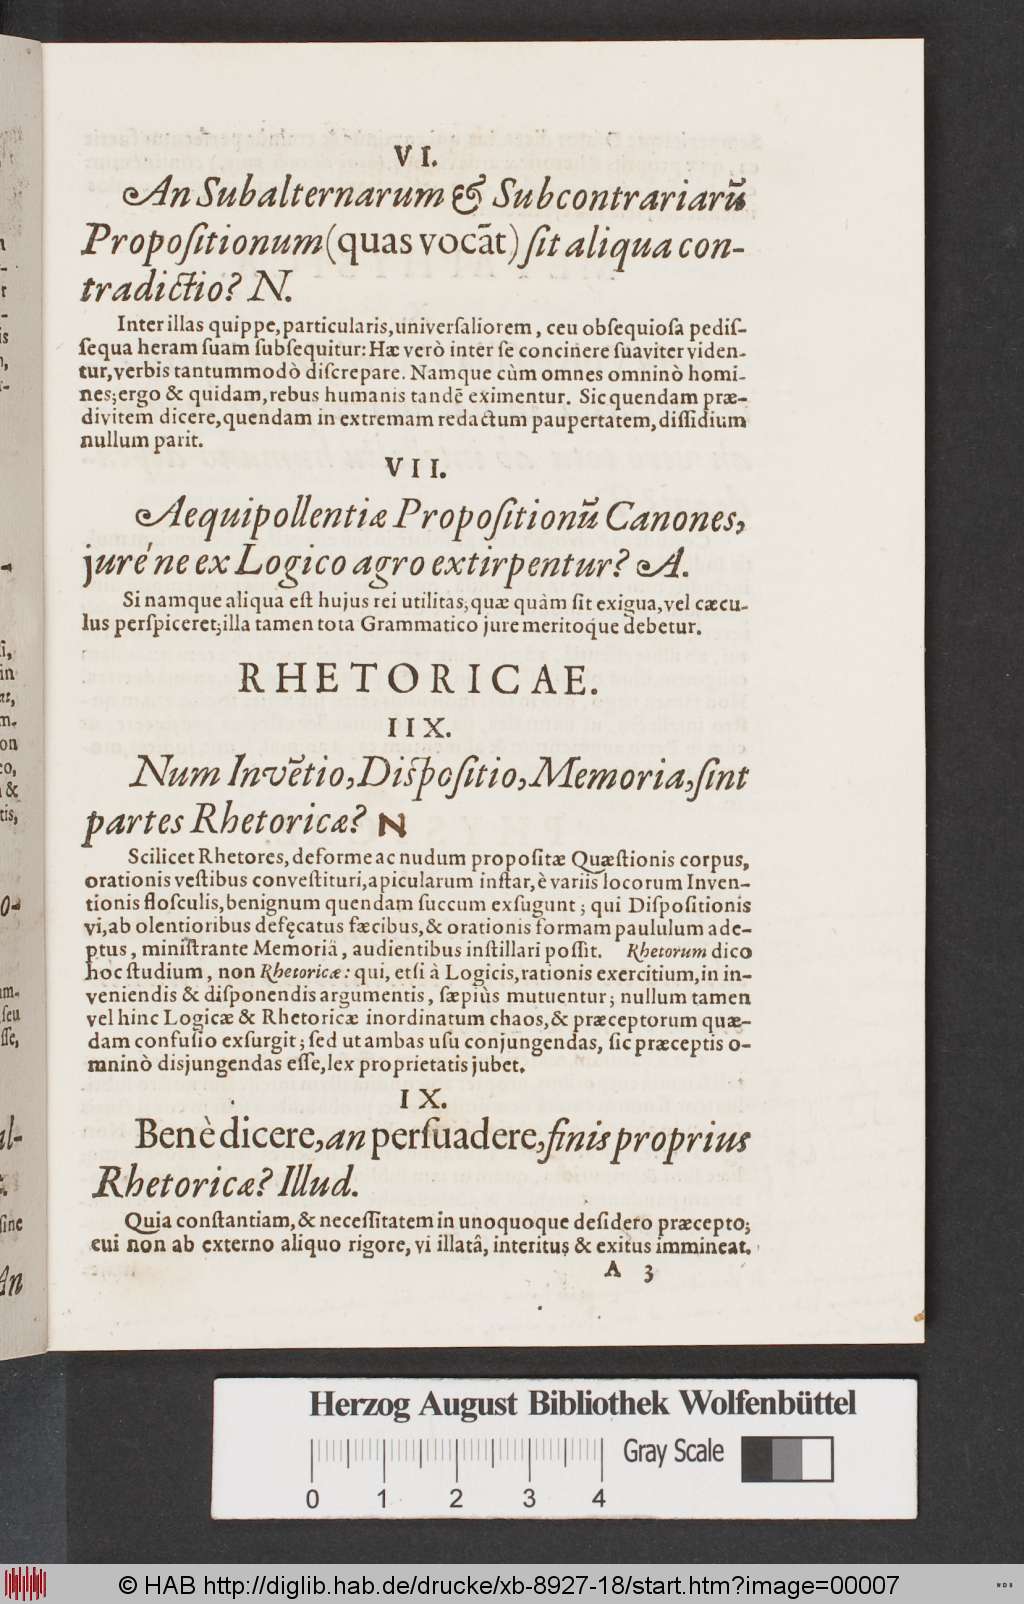 VI.
An Subalternarum & Subcontrariarũ
Propoſitionum (quas vocãt) ſit aliqua con-
tradictio? N.
Inter illas quippe, particularis, univerſaliorem, ceu obſequioſa pediſ-
ſequa heram ſuam ſubſequitur: Hæ verò inter ſe concinere ſuaviter viden-
tur, verbis tantummodò diſcrepare. Namque cùm omnes omninò homi-
nes; ergo & quidam, rebus humanis tandẽ eximentur. Sic quendam præ-
divitem dicere, quendam in extremam redactum paupertatem, diſſidium
nullum parit.
VII.
Aequipollentiæ Propoſitionũ Canones,
juréne ex Logico agro extirpentur? A.
Si namque aliqua eſt hujus rei utilitas, quæ quàm ſit exigua, vel cæcu-
lus perſpiceret; illa tamen tota Grammatico jure meritoque debetur.
RHETORICAE.
IIX.
Num Invẽtio, Diſpoſitio, Memoria, ſint
partes Rhetoricæ? N
Scilicet Rhetores, deforme ac nudum propoſitæ Quæſtionis corpus,
orationis veſtibus conveſtituri, apicularum inſtar, è variis locorum Inven-
tionis floſculis, benignum quendam ſuccum exſugunt; qui Diſpoſitionis
vi, ab olentioribus defęcatus fæcibus, & orationis formam paululum ade-
ptus, miniſtrante Memoriâ, audientibus inſtillari poſſit. Rhetorum dico
hoc ſtudium, non Rhetoricæ: qui, etſi à Logicis, rationis exercitium, in in-
veniendis & diſponendis argumentis, ſæpiùs mutuentur; nullum tamen
vel hinc Logicæ & Rhetoricæ inordinatum chaos, & præceptorum quæ-
dam confuſio exſurgit; ſed ut ambas uſu conjungendas, ſic præceptis o-
mninò disjungendas eſſe, lex proprietatis jubet.
IX.
Benè dicere, an perſuadere, finis proprius
Rhetoricæ? Illud.
Quia conſtantiam, & neceſſitatem in unoquoque deſidero præcepto;
cui non ab externo aliquo rigore, vi illatâ, interitus & exitus immineat.
A 3
Herzog August Bibliothek Wolfenbüttel
Gray Scale
0 1 2 3 4
© HAB http://diglib.hab.de/drucke/xb-8927-18/start.htm?image=00007